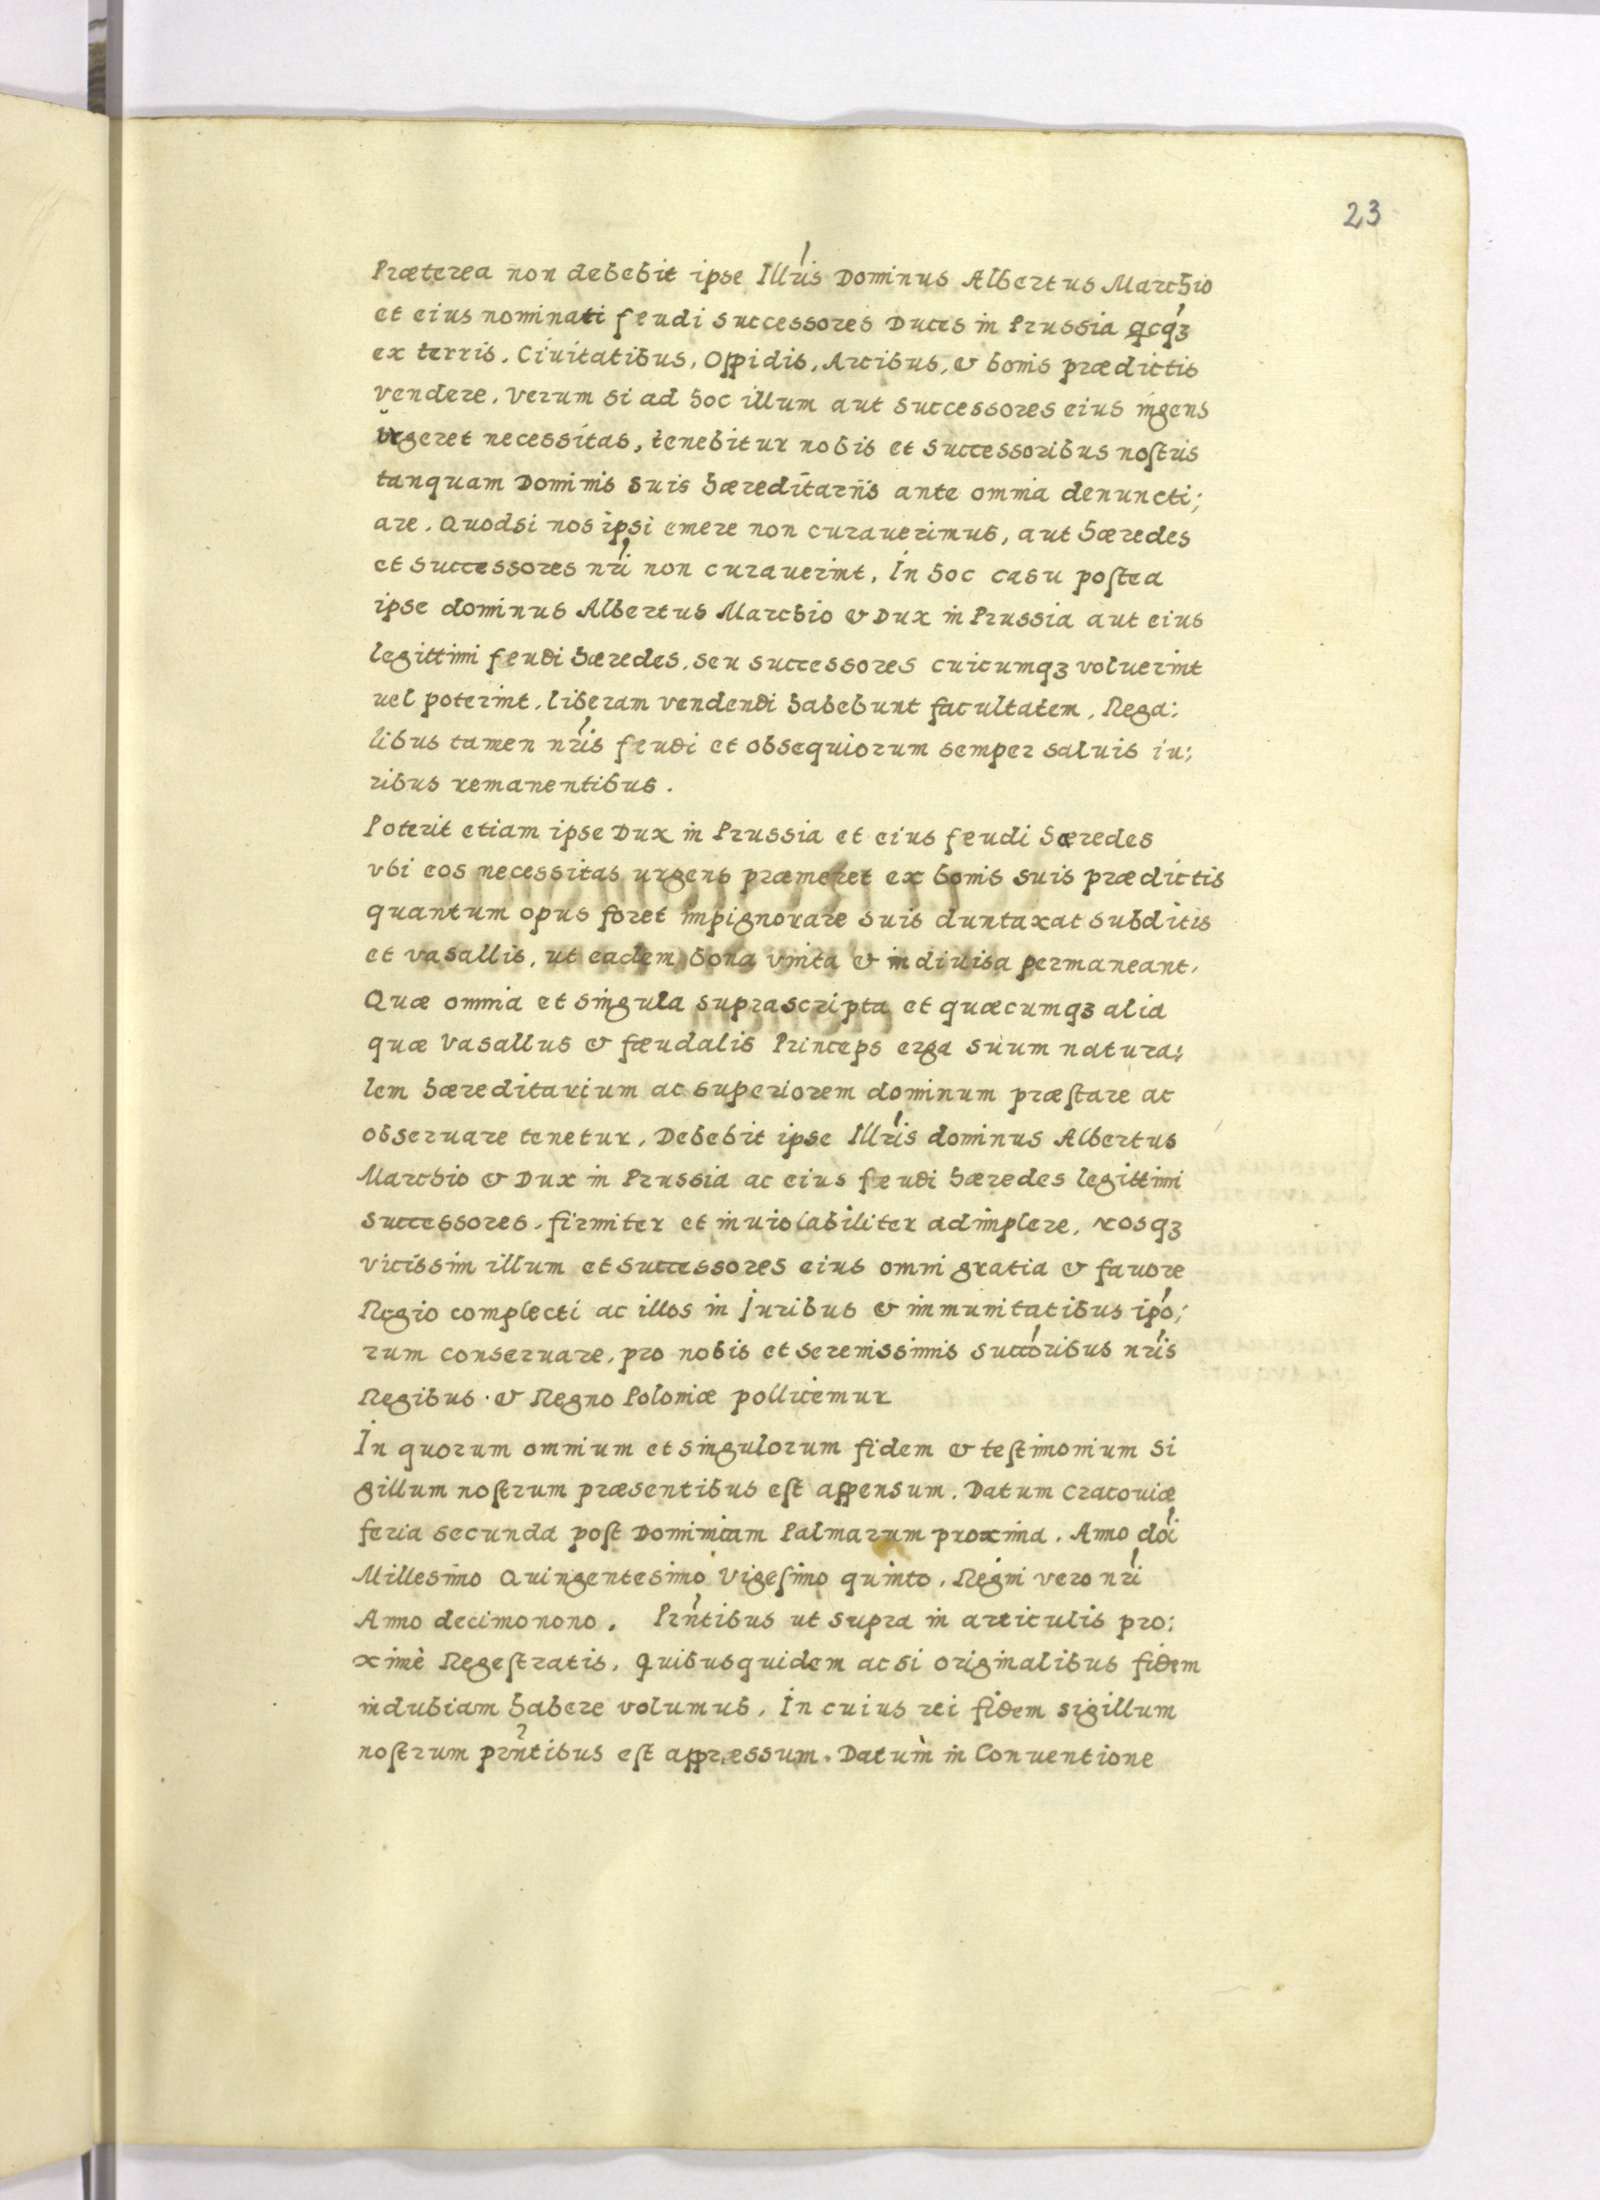 23
Præterea non debebit ipse Illris Dominus Albertus Marchio
et eius nominati feudi successores Duces in Prussia qcq3
ex terris, Ciuitatibus, Oppidis, Arcibus, & bonis prædictis
vendere, verum si ad hoc illum aut successores eius ingens
vrgeret necessitas, tenebitur nobis et successoribus noſtris
tanquam Dominis suis hæreditariis ante omnia denuncti;
are. Quodsi nos ipsi emere non curauerimus, aut hæredes
et successores nri non curauerint, In hoc casu poſtea
ipse dominus Albertus Marchio & Dux in Prussia aut eius
legittimi feudi hæredes, seu successores cuicumq3 voluerint
uel poterint, liberam vendendi habebunt facultatem, Rega:
libus tamen nris feudi et obsequiorum semper saluis iu;
ribus remanentibus.
Poterit etiam ipse Dux in Prussia et eius feudi hæredes
vbi eos necessitas urgens præmeret ex bonis suis prædictis
quantum opus foret impignorare suis duntaxat subditis
et vasallis, ut eadem bona vnita & indiuisa permaneant,
Quæ omnia et singula suprascripta et quæcumq3 alia
quæ Vasallus & fæudalis Princeps erga suum natura;
lem hæreditarium ac superiorem dominum præſtare ac
obseruare tenetur, Debebit ipse Illris dominus Albertus
Marchio & Dux in Prussia ac eius feudi hæredes legittimi
successores, firmiter et inuiolabiliter adimplere, nosq3
vicissim illum et successores eius omni gratia & fauore
Regio complecti ac illos in Juribus & immunitatibus ipo;
rum conseruare, pro nobis et serenissimis succoribus nris
Regibus & Regno Poloniæ pollicemur
In quorum omnium et singulorum fidem & teſtimonium si
gillum noſtrum præsentibus eſt appensum. Datum Cracouiæ
feria secunda poſt Dominicam Palmarum proxima. Anno doi
Millesimo Quingentesimo Vigeſimo quinto, Regni vero nri
Anno decimonono. Prntibus ut supra in articulis pro:
ximè Regeſtratis, Quibusquidem ac si originalibus fidem
indubiam habere volumus, In cuius rei fidem sigillum
noſtrum prntibus eſt appræssum. Datum in Conuentione